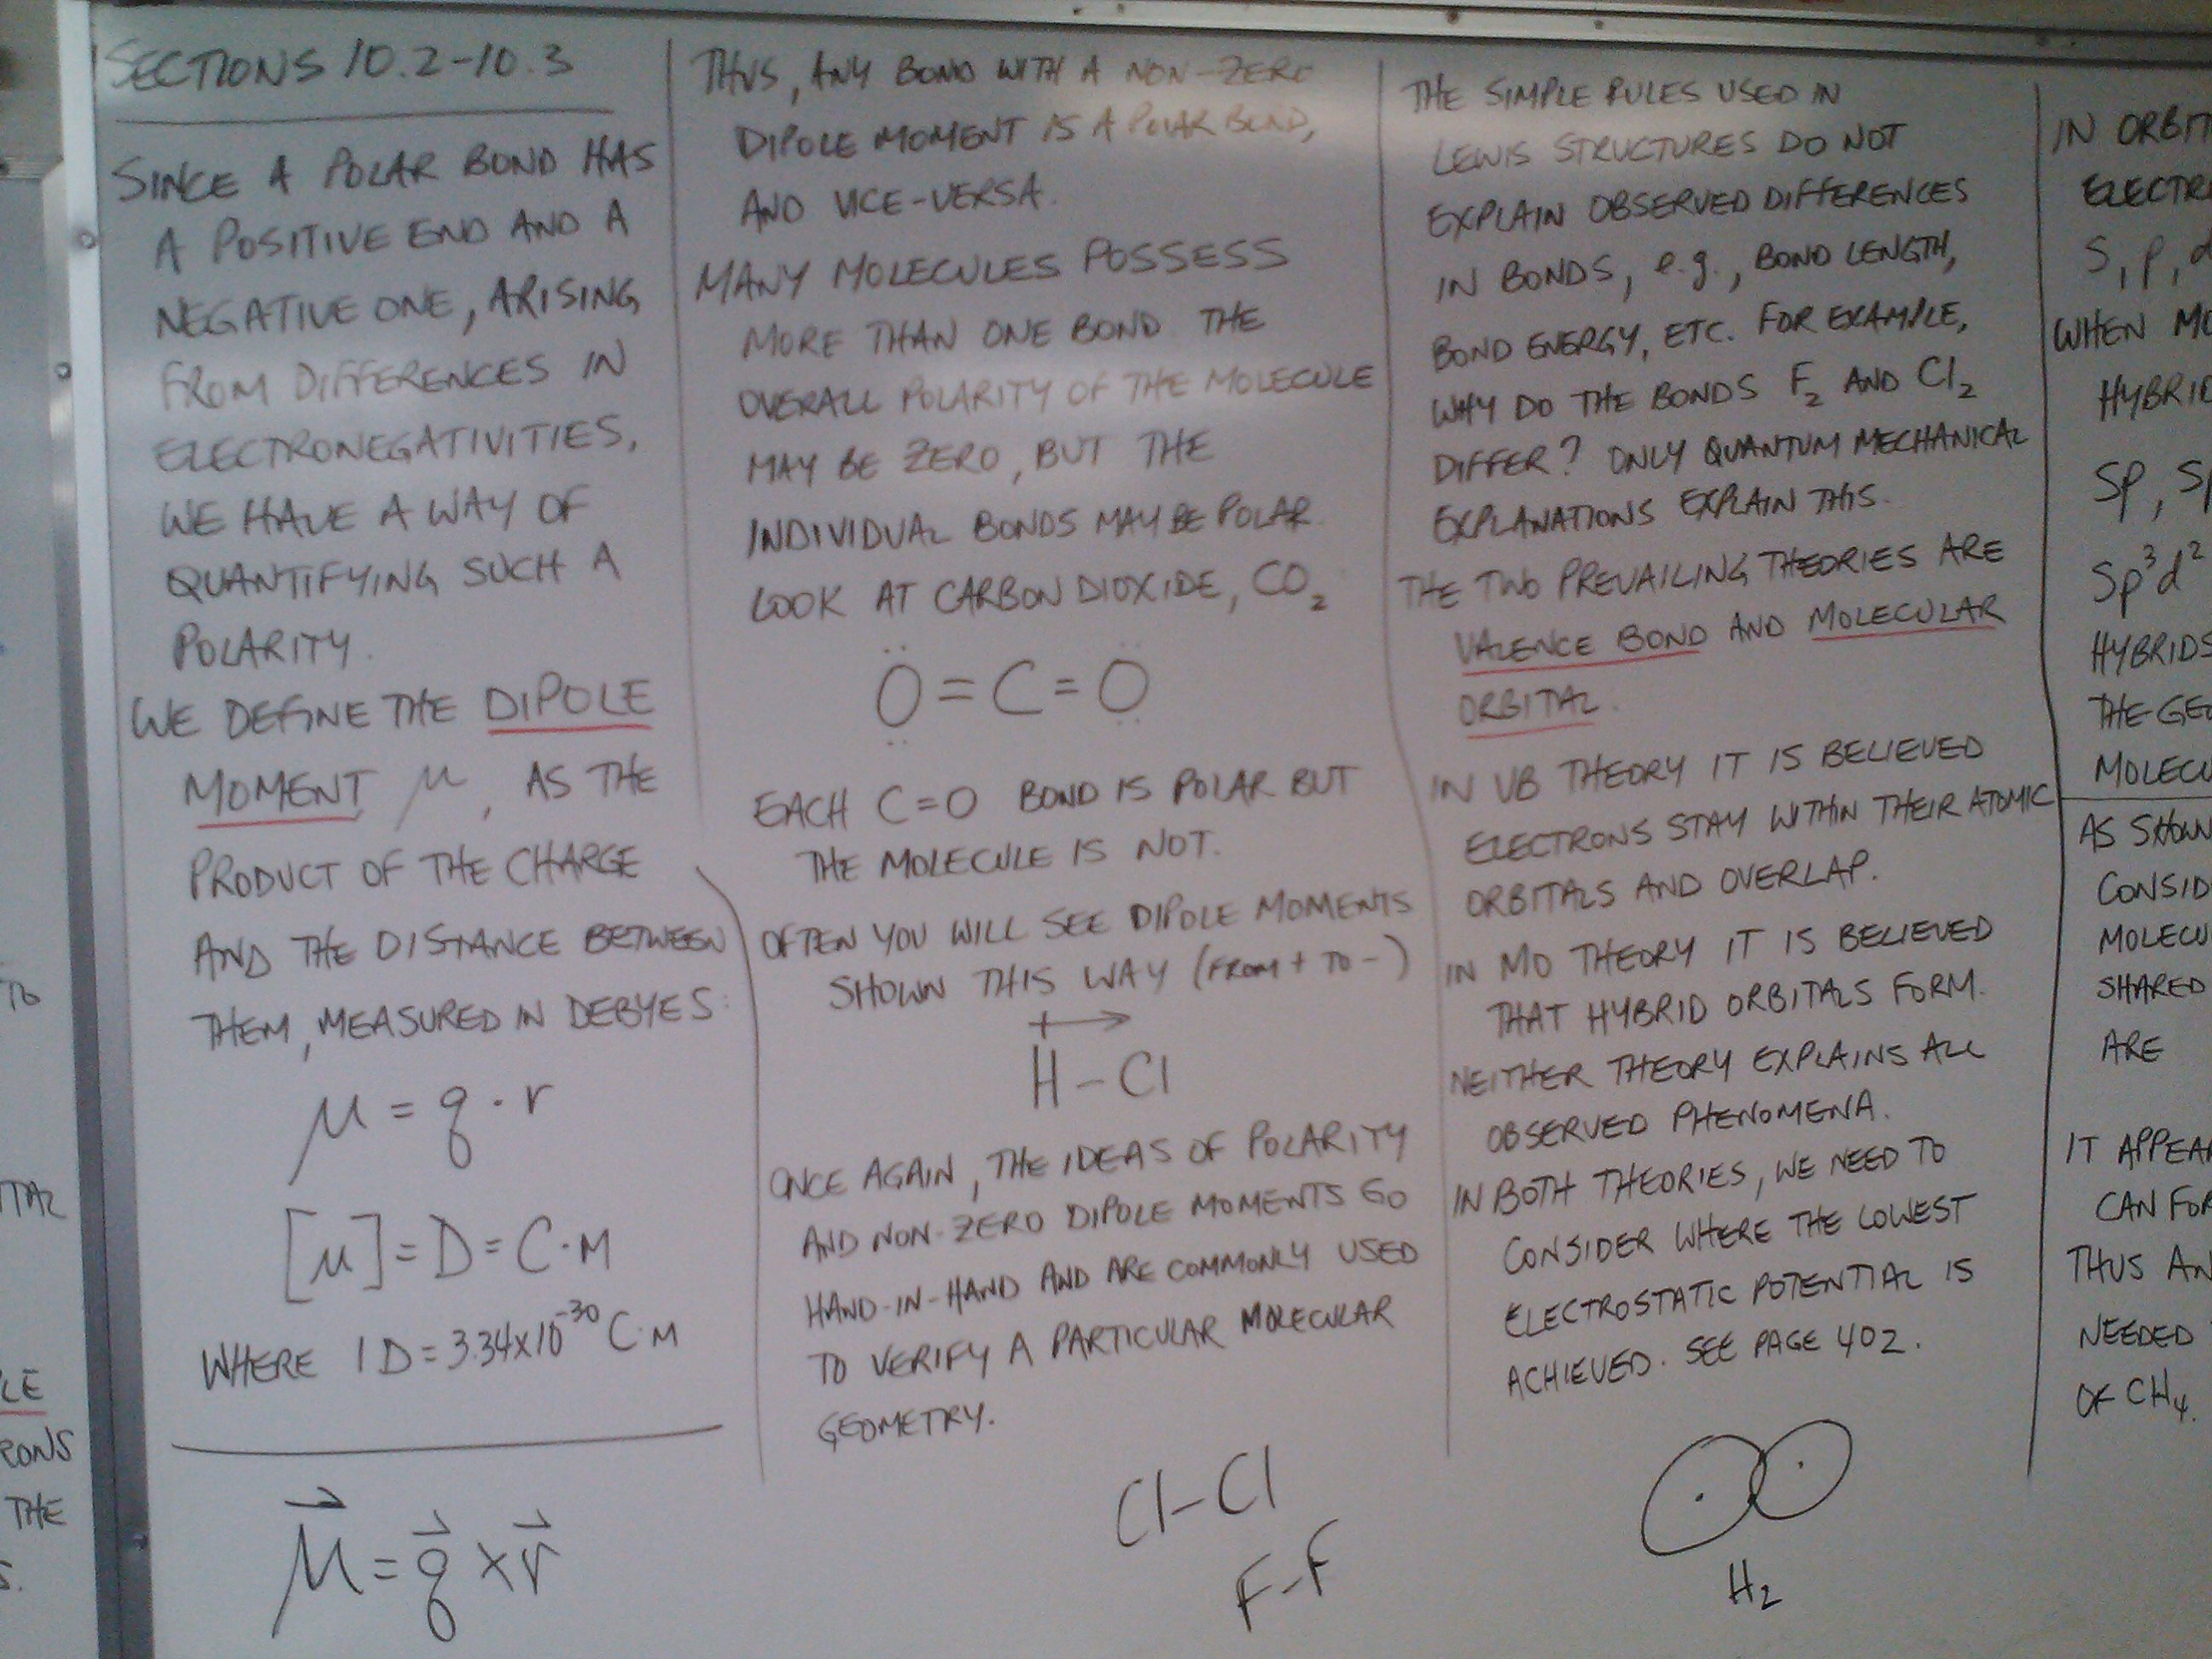 SECTIONS 10.2-10.3
SINCE A POLAR BOND HAS
A POSITIVE END AND A
NEGATIVE ONE, ARISING
FROM DIFFERENCES IN
ELECTRONEGATIVITIES,
WE HAVE A WAY OF
QUANTIFYING SUCH A
POLARITY.
WE DEFINE THE DIPOLE
MOMENT, μ, AS THE
PRODUCT OF THE CHARGE
AND THE DISTANCE BETWEEN
THEM, MEASURED IN DEBYES:
μ = q · r
[μ] = D = C·M
WHERE 1 D = 3.34x10⁻³⁰ C·M
μ⃗ = q⃗ x r⃗
THUS, ANY BOND WITH A NON-ZERO
DIPOLE MOMENT IS A POLAR BOND,
AND VICE-VERSA.
MANY MOLECULES POSSESS
MORE THAN ONE BOND THE
OVERALL POLARITY OF THE MOLECULE
MAY BE ZERO, BUT THE
INDIVIDUAL BONDS MAY BE POLAR.
LOOK AT CARBON DIOXIDE, CO₂
O=C=O
EACH C=O BOND IS POLAR BUT
THE MOLECULE IS NOT.
OFTEN YOU WILL SEE DIPOLE MOMENTS
SHOWN THIS WAY (FROM + TO -)
H-Cl
ONCE AGAIN, THE IDEAS OF POLARITY
AND NON-ZERO DIPOLE MOMENTS GO
HAND-IN-HAND AND ARE COMMONLY USED
TO VERIFY A PARTICULAR MOLECULAR
GEOMETRY.
Cl-Cl
F-F
THE SIMPLE RULES USED IN
LEWIS STRUCTURES DO NOT
EXPLAIN OBSERVED DIFFERENCES
IN BONDS, e.g., BOND LENGTH,
BOND ENERGY, ETC. FOR EXAMPLE,
WHY DO THE BONDS F₂ AND Cl₂
DIFFER? ONLY QUANTUM MECHANICAL
EXPLANATIONS EXPLAIN THIS.
THE TWO PREVAILING THEORIES ARE
VALENCE BOND AND MOLECULAR
ORBITAL.
IN VB THEORY IT IS BELIEVED
ELECTRONS STAY WITHIN THEIR ATOMIC
ORBITALS AND OVERLAP.
IN MO THEORY IT IS BELIEVED
THAT HYBRID ORBITALS FORM.
NEITHER THEORY EXPLAINS ALL
OBSERVED PHENOMENA.
IN BOTH THEORIES, WE NEED TO
CONSIDER WHERE THE LOWEST
ELECTROSTATIC POTENTIAL IS
ACHIEVED. SEE PAGE 402.
H₂
IN ORBIT
ELECTR
S, p, d
WHEN MO
HYBRID
Sp, Sp
Sp³d²
HYBRIDS
THE GEO
MOLECU
AS SHOWN
CONSID
MOLECU
SHARED
ARE
IT APPEA
CAN FOR
THUS AN
NEEDED
OF CH₄.
TO
ITAL
LE
RONS
THE
S.